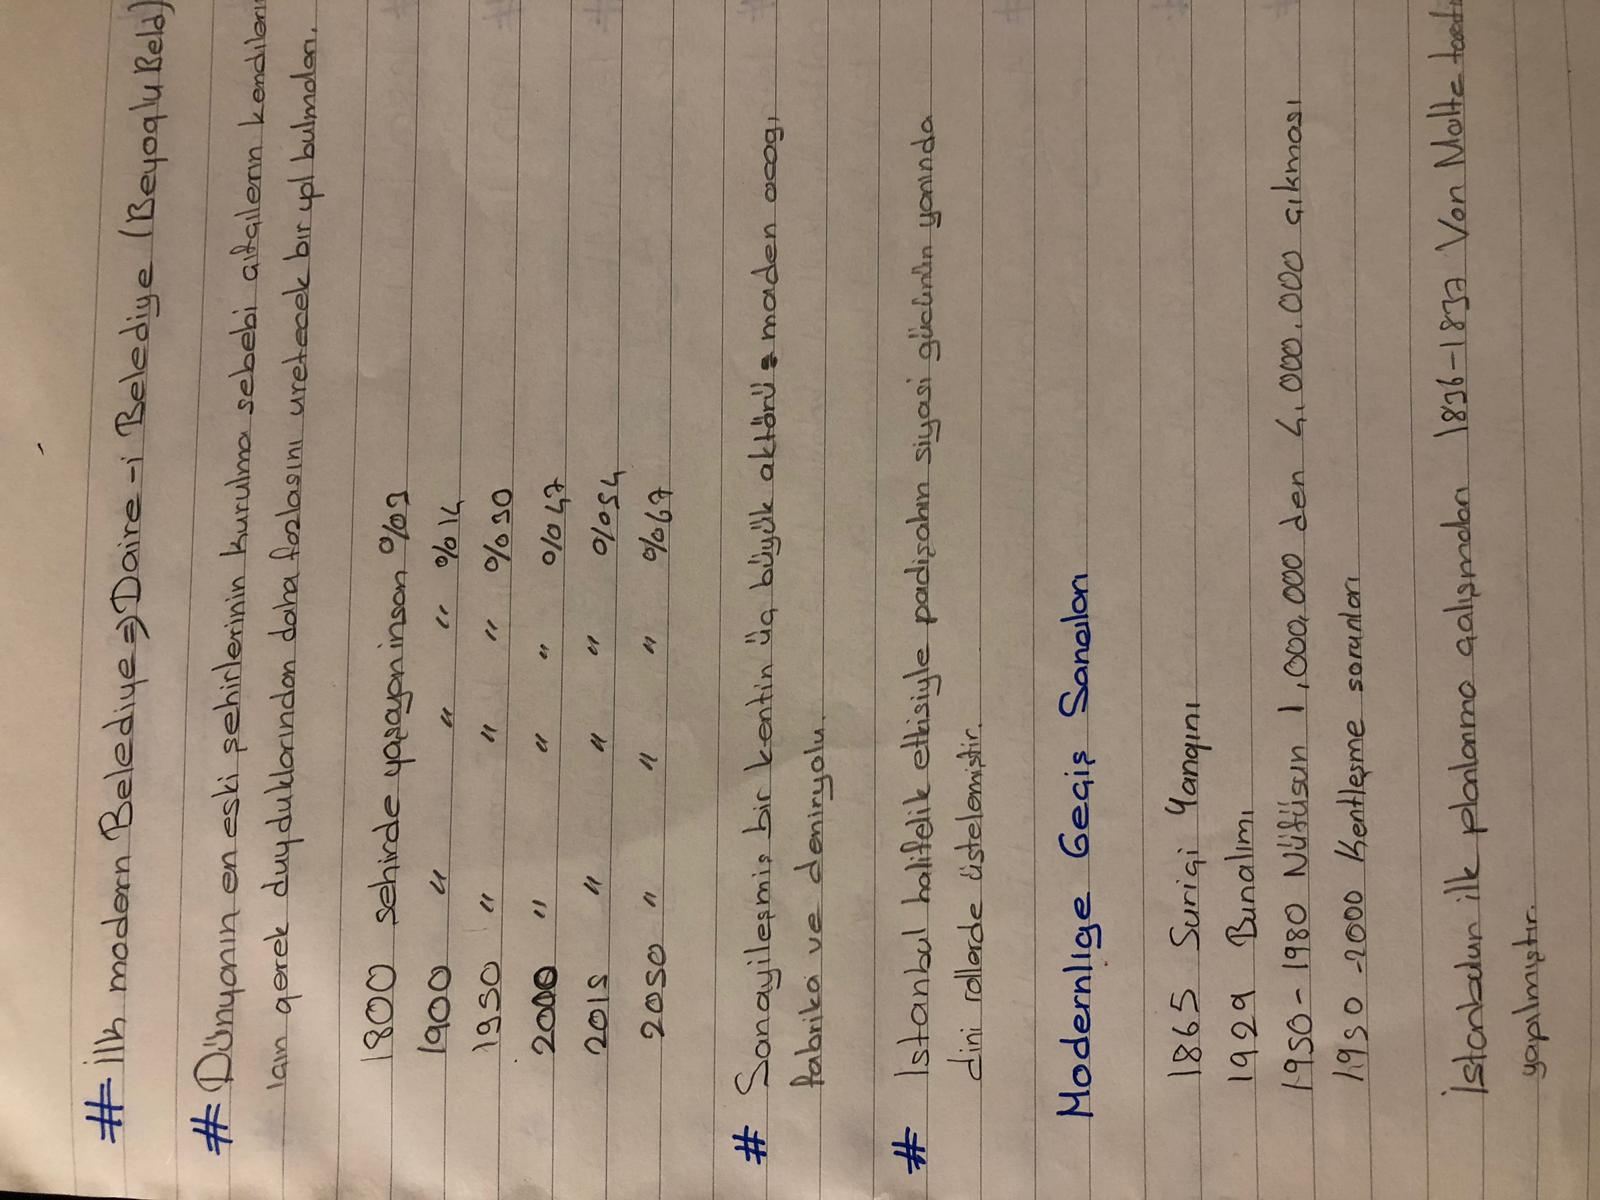 # İlk modern Belediye ⇒ Daire-i Belediye (Beyoglu Beld)
# Dünyanın en eski şehirlerinin kurulma sebebi çifçilerin kendileri
için gerek duyduklarından daha fazlasını uretecek bir yol bulmaları.
1800 sehirde yaşayan insan %3
1900 " " " %14
1950 " " " %30
2000 " " " %47
2015 " " " %54
2050 " " " %67
# Sanayileşmiş bir kentin üç büyük aktörü = maden ocagı,
fabrika ve demiryolu.
# Istanbul halifelik etkisiyle padişahın siyasi gücünün yanında
dini rollerde üstelemiştir.
Modernlıge Geçiş Sancıları
1865 Suriçi Yangını
1929 Bunalımı
1950-1980 Nüfüsun 1,000,000 den 4.000.000 çıkması
1950-2000 Kentleşme sorunları
İstanbulun ilk planlanma çalışmaları 1836-1837 Von Molte
yapılmıştır.